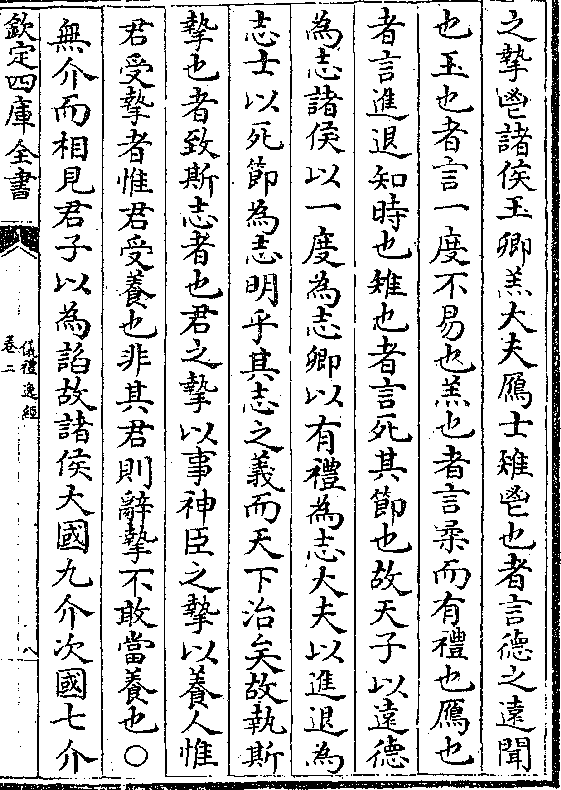 之摯鬯諸侯玉卿羔大夫鴈士雉鬯也者言德之遠聞
也玉也者言一度不易也羔也者言柔而有禮也鴈也
者言進退知時也雉也者言死其節也故天子以遠德
為志諸侯以一度為志卿以有禮為志大夫以進退為
志士以死節為志明乎其志之義而天下治矣故執斯
摯也者致斯志者也君之摯以事神臣之摯以養人惟
君受摯者惟君受養也非其君則辭摯不敢當養也○
無介而相見君子以為諂故諸侯大國九介次國七介
欽定四庫全書
儀禮逸經
卷二
八